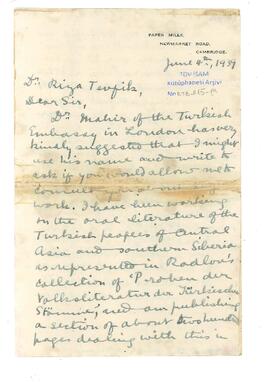 PAPER MILLS,
NEWMARKET ROAD,
CAMBRIDGE.
June 4th, 1939
TDV İSAM
Kütüphanesi Arşivi
No
Dr. Riza Tevfik,
Dear Sir,
Dr. Mahir of the Turkish
Embassy in London has very
kindly suggested that I might
use his name and write to
ask if you would allow me to
consult you about my
work. I have been working
on the oral literature of the
Turkish peoples of Central
Asia and southern Siberia
as represented in Radlov's
collection of 'Proben der
Volksliteratur der Türkischen
Stämme, and am publishing
a section of about two hundred
pages dealing with this in